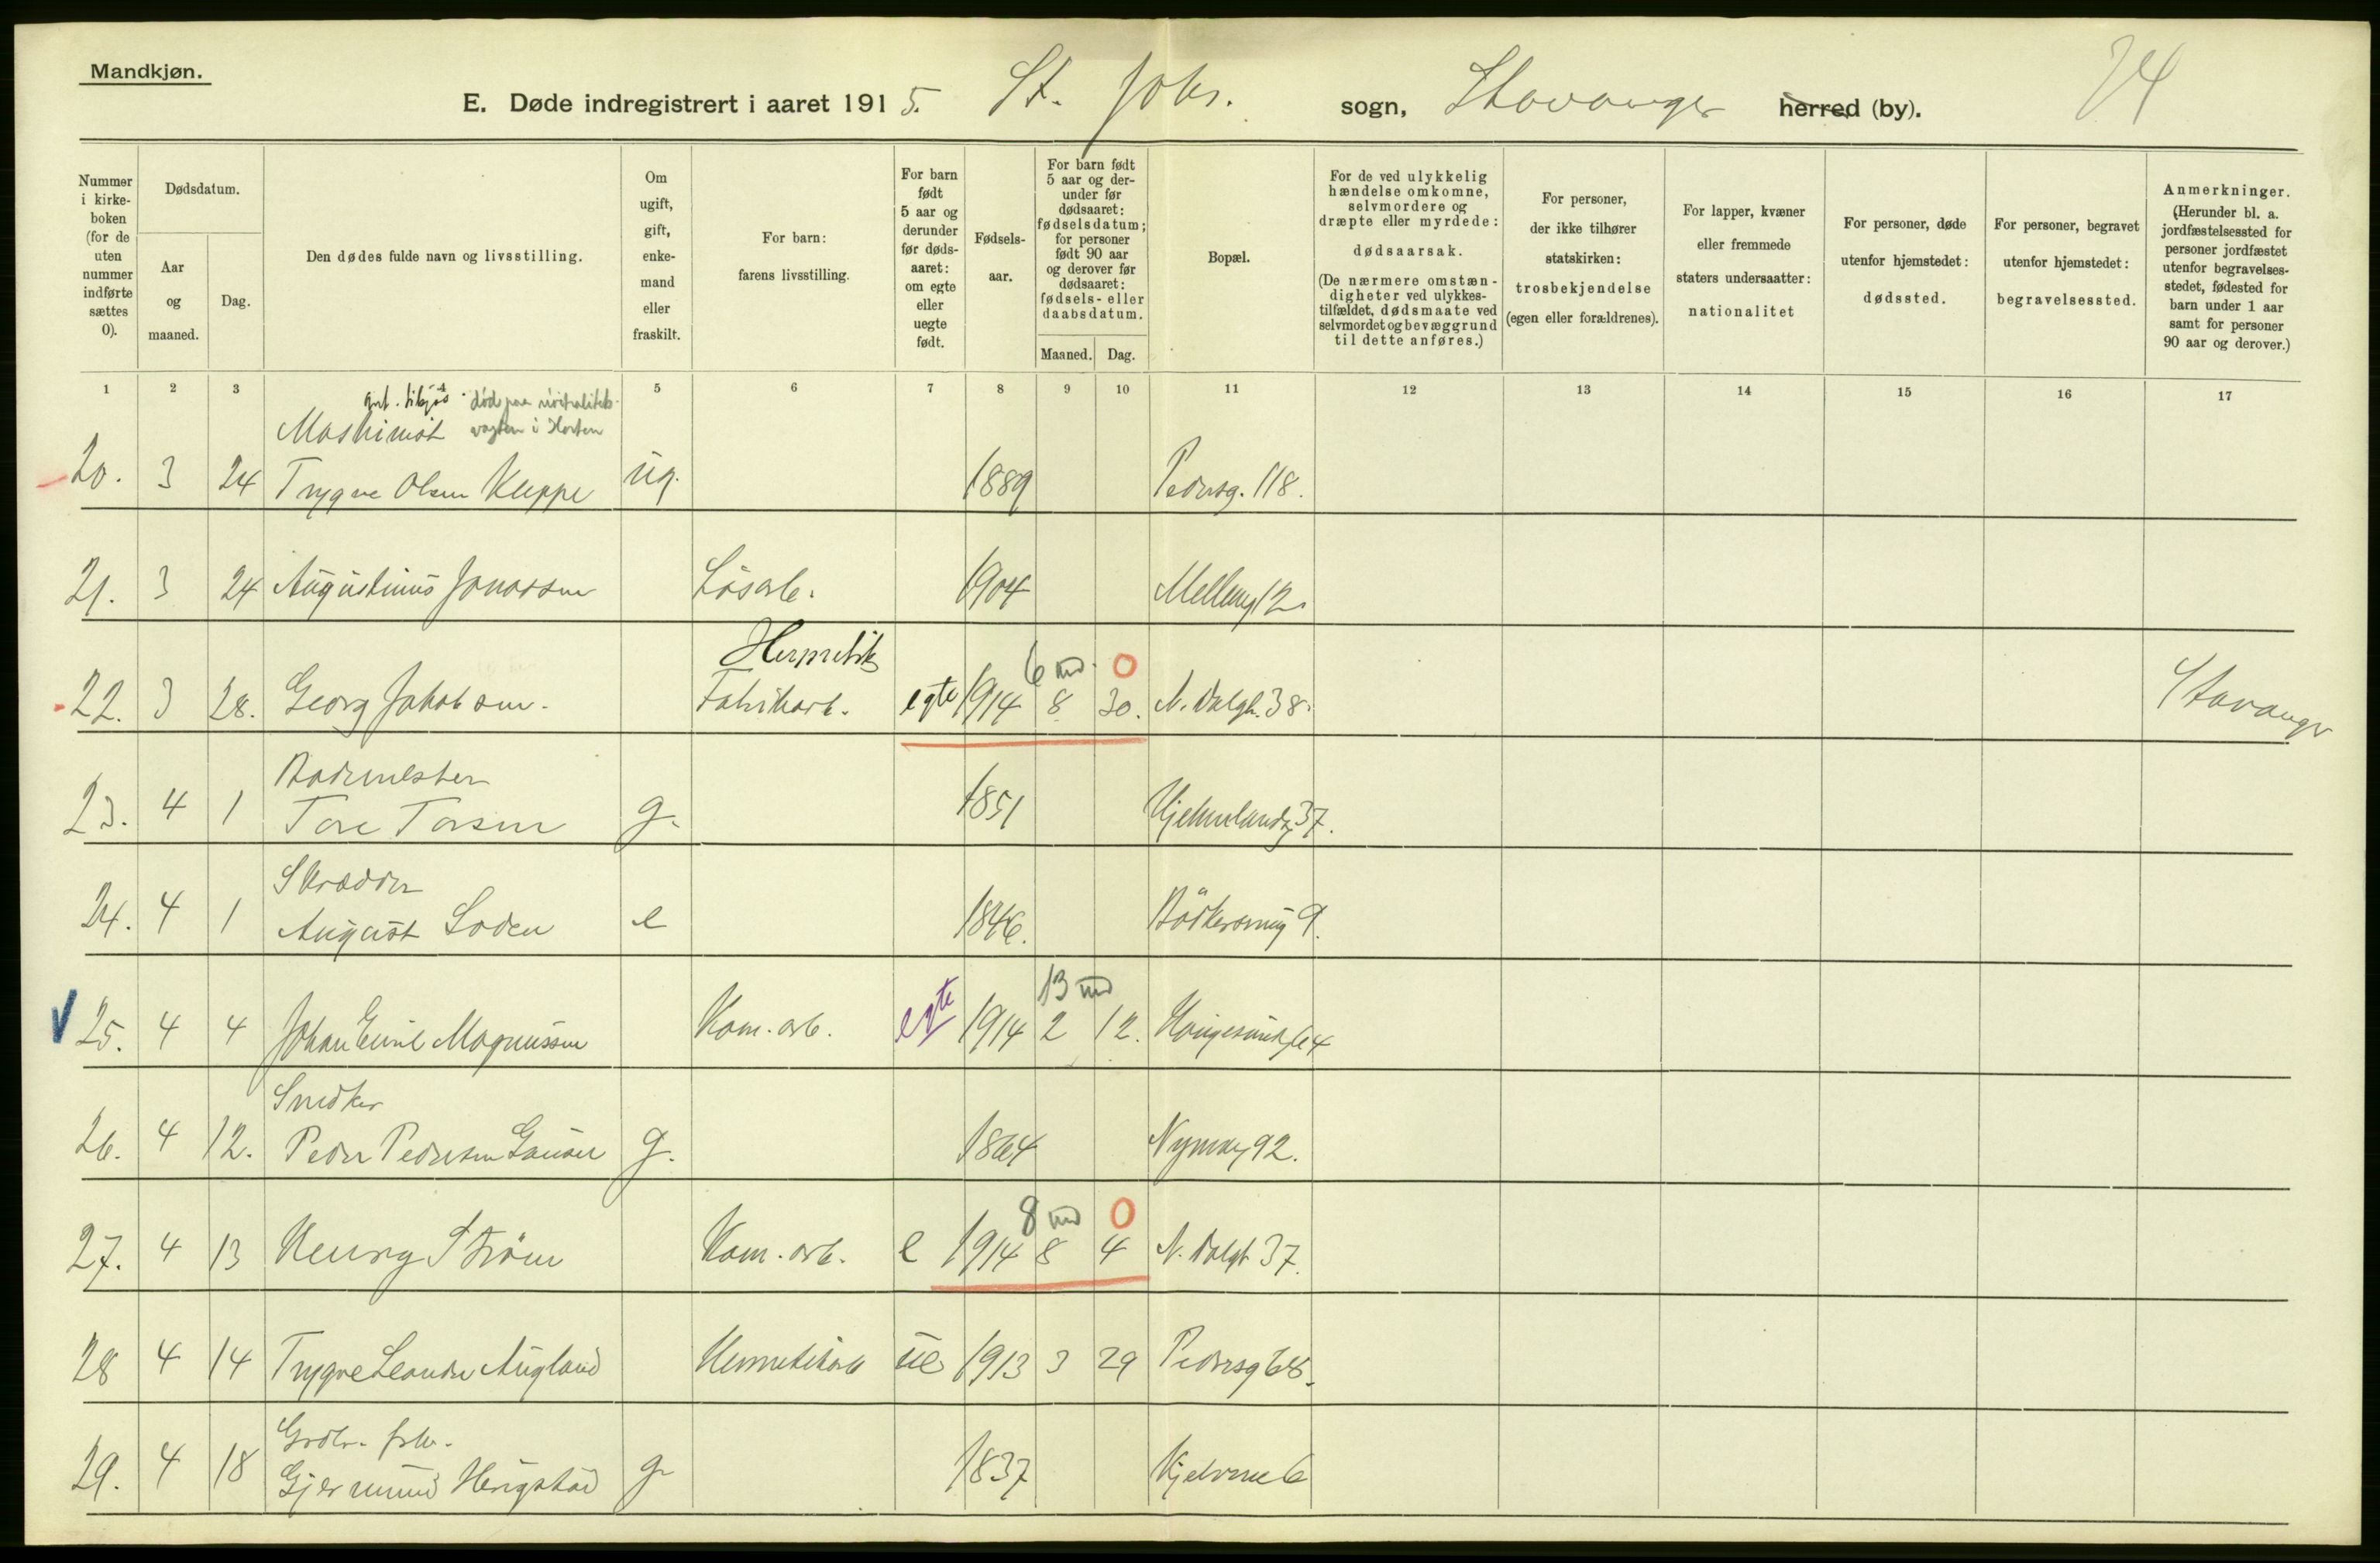 Mandkjøn.
E. Døde indregistrert i aaret 1915. St. Johs. sogn, Stavanger herred (by).
74
Nummer i kirkeboken (for de uten nummer indførte sættes 0).
Dødsdatum.
Aar og maaned.
Dag.
Den dødes fulde navn og livsstilling.
Om ugift, gift, enkemand eller fraskilt.
For barn: farens livsstilling.
For barn født 5 aar og derunder før dødsaaret: om egte eller uegte født.
Fødselsaar.
For barn født 5 aar og derunder før dødsaaret: fødselsdatum; for personer født 90 aar og derover før dødsaaret: fødsels- eller daabsdatum.
Maaned.
Dag.
Bopæl.
For de ved ulykkelig hændelse omkomne, selvmordere og dræpte eller myrdede: dødsaarsak. (De nærmere omstændigheter ved ulykkestilfældet, dødsmaate ved selvmordet og bevæggrund til dette anføres.)
For personer, der ikke tilhører statskirken: trosbekjendelse (egen eller forældrenes).
For lapper, kvæner eller fremmede staters undersaatter: nationalitet
For personer, døde utenfor hjemstedet: dødssted.
For personer, begravet utenfor hjemstedet: begravelsessted.
Anmerkninger. (Herunder bl. a. jordfæstelsessted for personer jordfæstet utenfor begravelsesstedet, fødested for barn under 1 aar samt for personer 90 aar og derover.)
1 2 3 5 6 7 8 9 10 11 12 13 14 15 16 17
død paa nøitralitets-
Maskinist vagten i Horten
20. 3 24 Trygve Olsen Kleppe ug. 1889 Pedersg. 118.
21. 3 24 Augustinus Jonassen Løsarb. 1904 Melleng 12
Hermetik 6 md. 0
22. 3 28. Georg Jakobsen. Fabrikarb. egte 1914 8 30. N. Dalgt. 38. Stavanger
Bademester
23. 4 1 Tore Torsen g. 1851 Hjelmelandsg 37.
Skrædder
24. 4 1 August Soden e 1846. Bödkersmug 9.
13 md
25. 4 4 Johan Emil Magnussen Kom. arb. egte 1914 2 12. Haugesundsg 64
Snedker
26. 4 12. Peder Pedersen Gausel g. 1864 Nymansv 92.
8 md 0
27. 4 13 Henry Strøm Kom. arb. e 1914 8 4 N. Dalgt 37.
28 4 14 Trygve Leander Augland Hermetikarb ue 1913 3 29 Pedersg 68.
Grdbr.
29. 4 18 Gjermund Herigstad g. 1837 Kjelvene 6